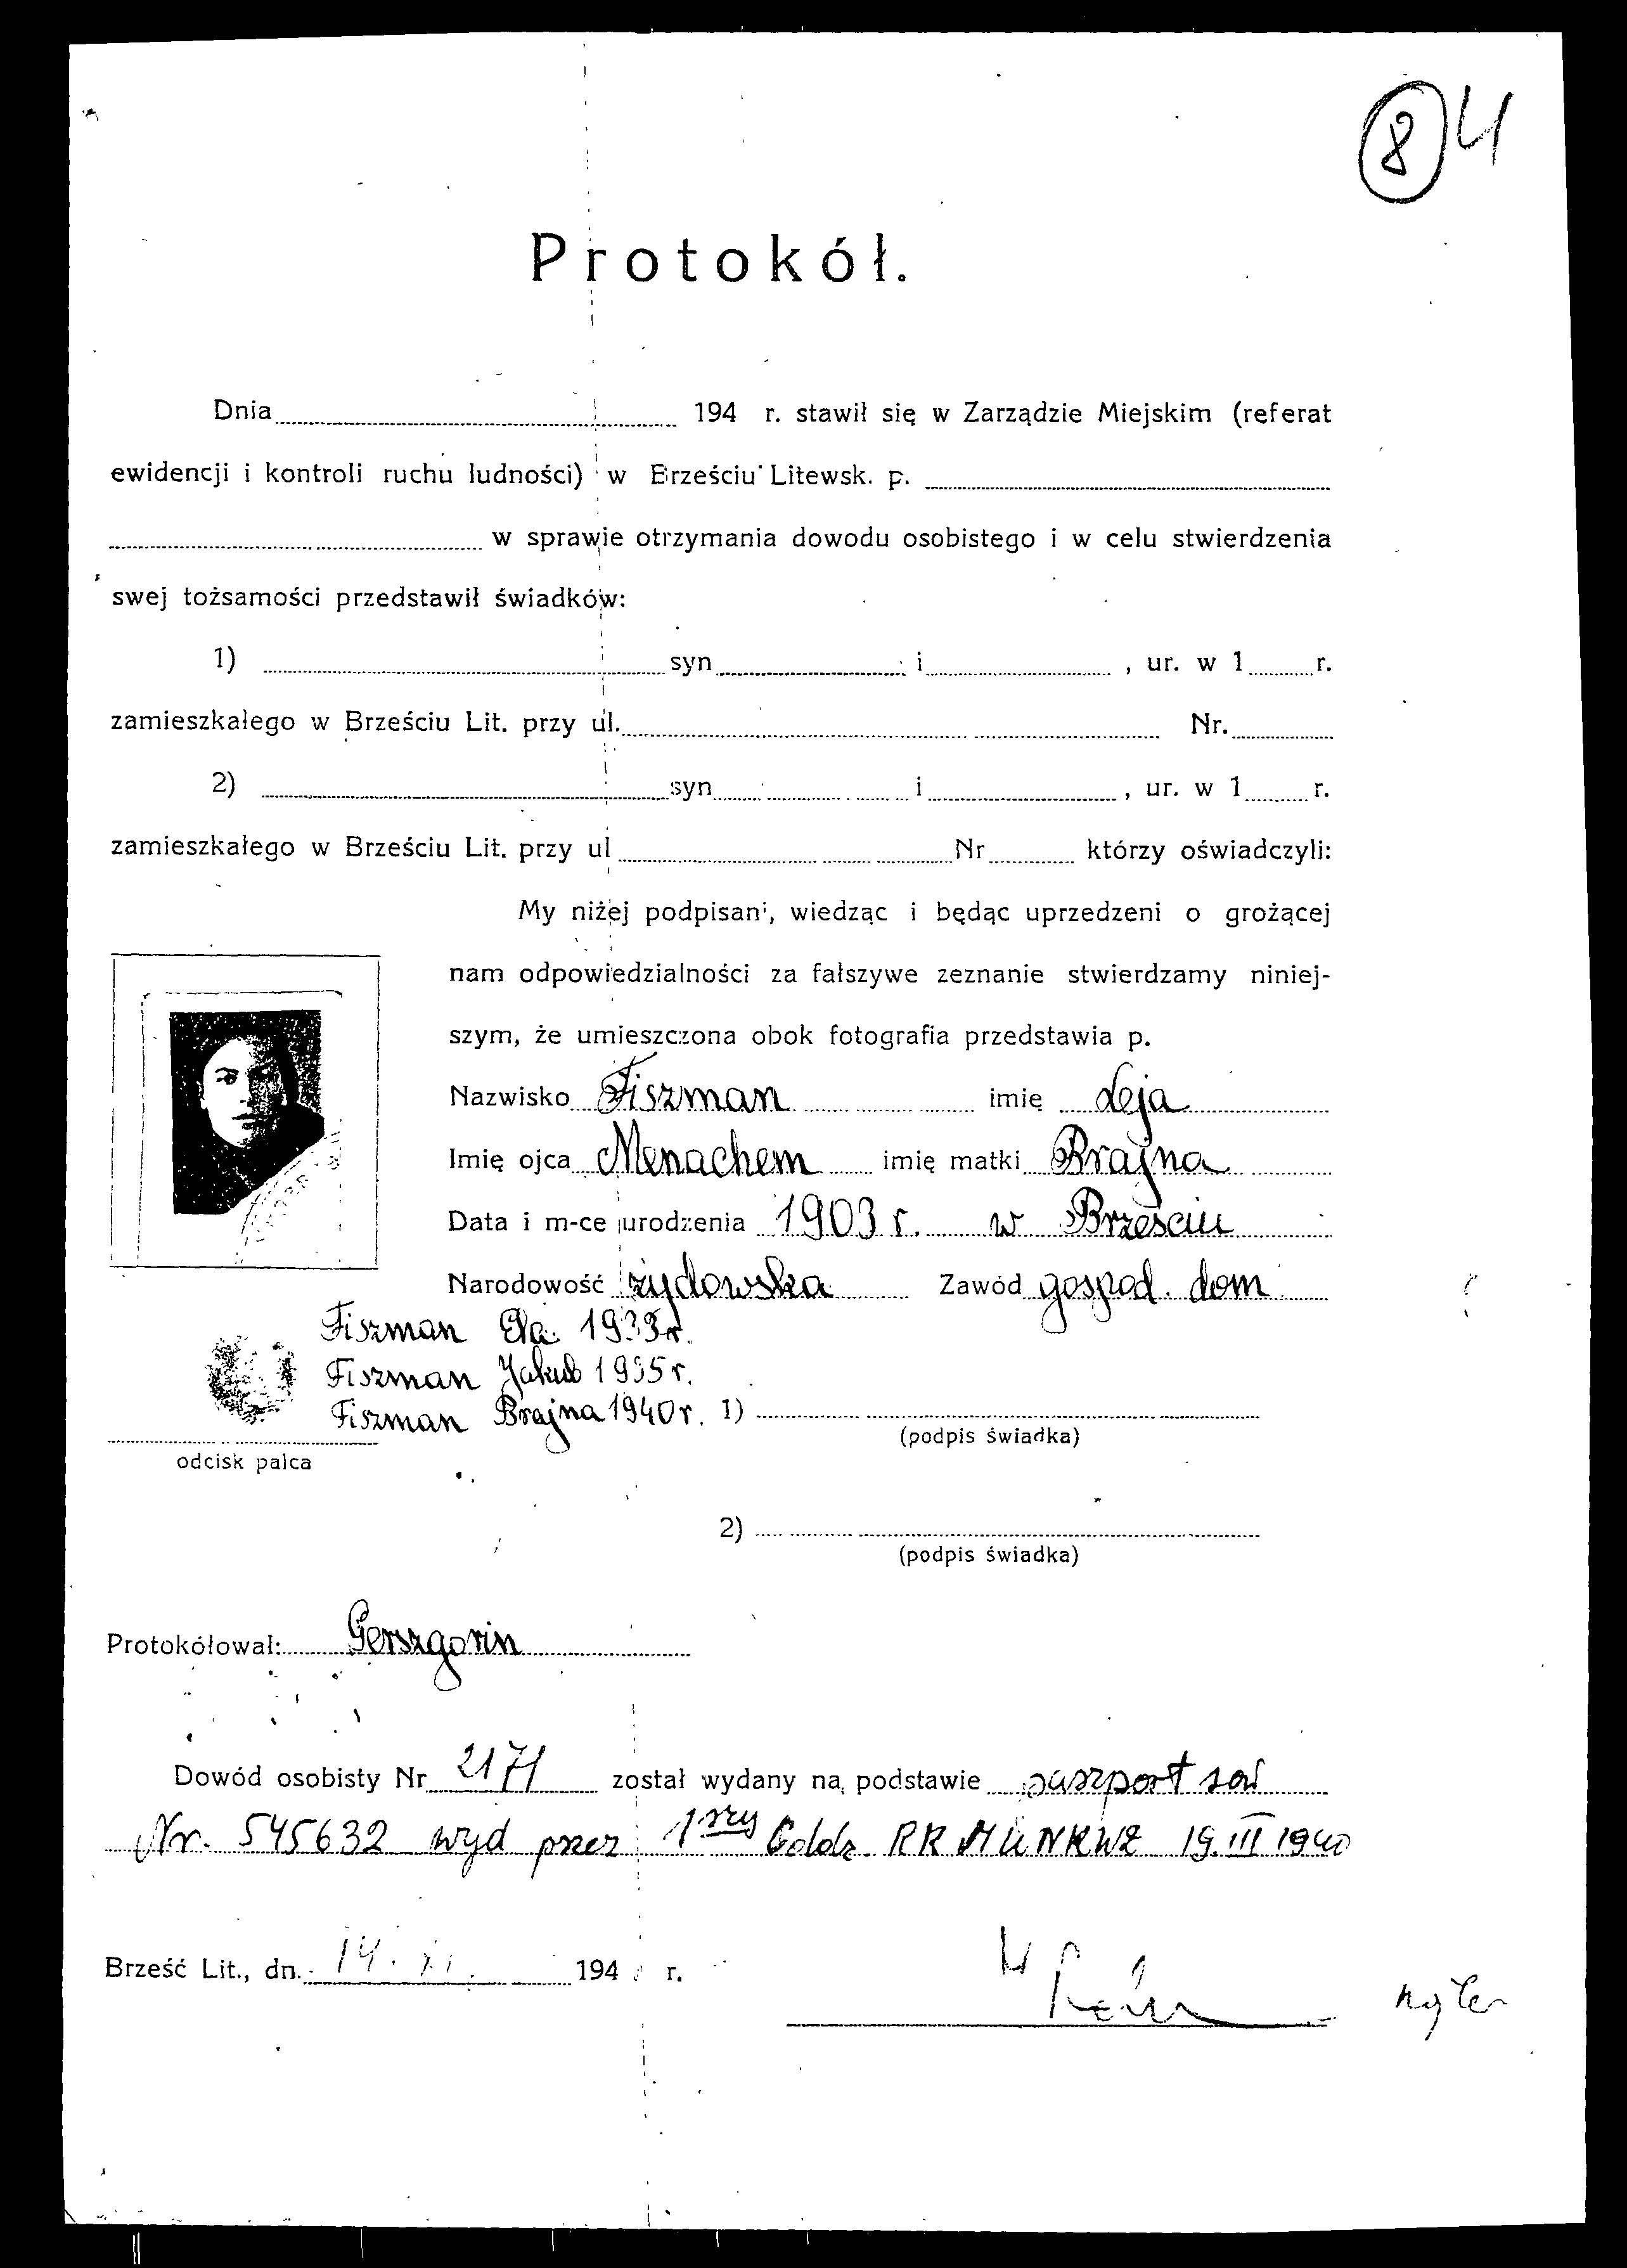 8 4
Protokół.
Dnia 194 r. stawił się w Zarządzie Miejskim (referat
ewidencji i kontroli ruchu ludności) w Brześciu Litewsk. p.
w sprawie otrzymania dowodu osobistego i w celu stwierdzenia
swej tożsamości przedstawił świadków:
1) syn i , ur. w 1 r.
zamieszkałego w Brześciu Lit. przy ul. Nr.
2) syn i , ur. w 1 r.
zamieszkałego w Brześciu Lit. przy ul Nr którzy oświadczyli:
My niżej podpisani, wiedząc i będąc uprzedzeni o grożącej
nam odpowiedzialności za fałszywe zeznanie stwierdzamy niniej-
szym, że umieszczona obok fotografia przedstawia p.
Nazwisko Fiszman imię Leja
Imię ojca Menachem imię matki Brajna
Data i m-ce urodzenia 1903 r. w Brześciu
Narodowość żydowska Zawód gospod. dom
Fiszman Ela 1933 r.
Fiszman Jakub 1935 r.
Fiszman Brajna 1940 r. 1)
(podpis świadka)
odcisk palca
2)
(podpis świadka)
Protokółował: Gerszgorin
Dowód osobisty Nr 2171 został wydany na podstawie paszport sow
Nr. 545632 wyd przez 1szy Oddz. RKM UNKWD 19.III 1940
Brześć Lit., dn. 14. XI. 194 r.